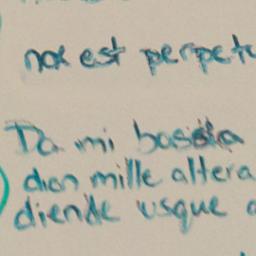 nox est perpetu
Da mi basia
dien mille altera
diende usque